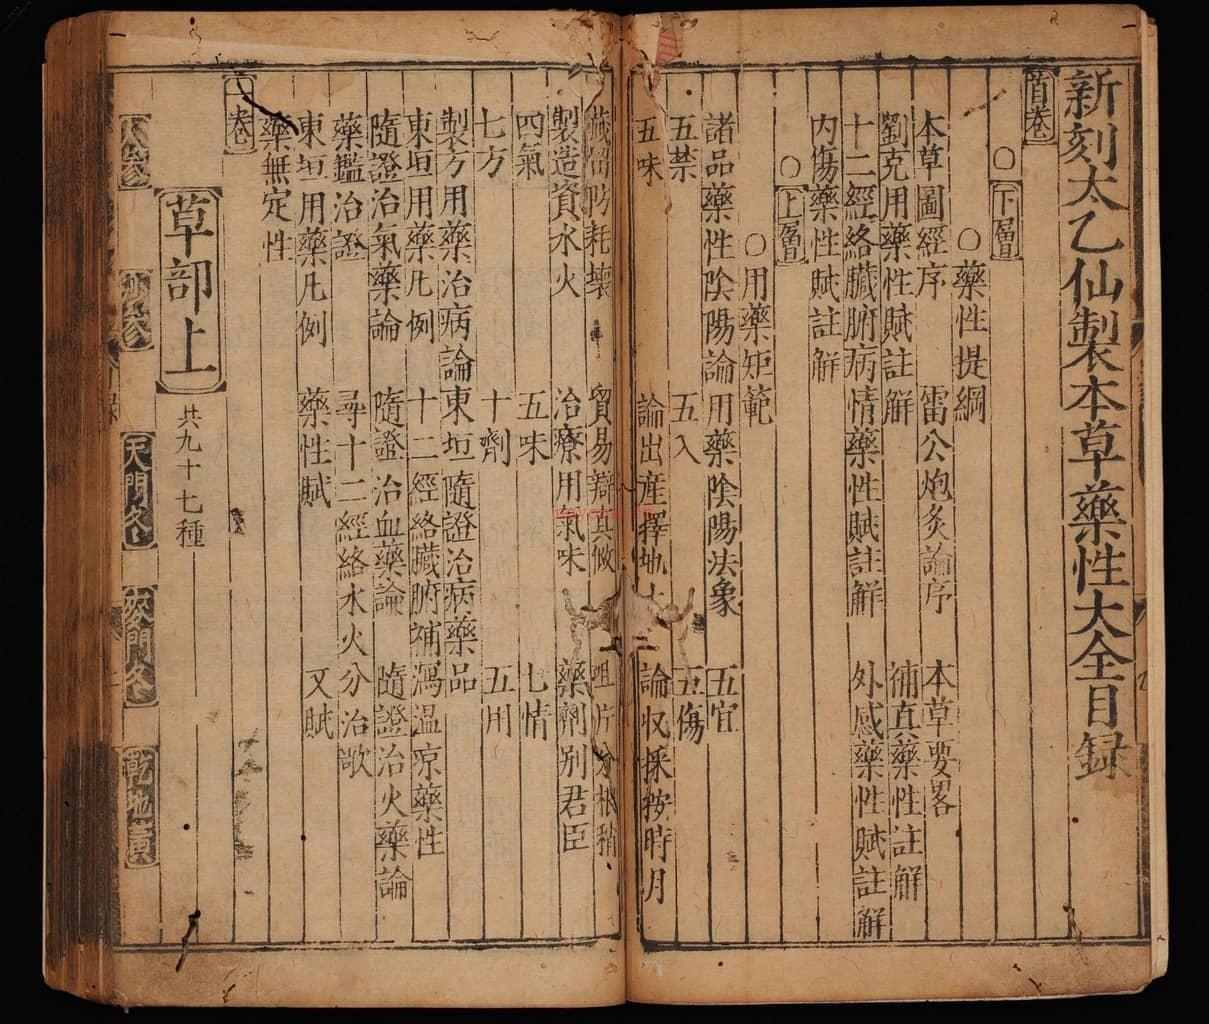 新刻太乙仙製本草藥性大全目録
首卷
○下層
○藥性提綱
本草圖經序 雷公炮炙論序 本草要畧
劉克用藥性賦註解 補直藥性註解
十二經絡臟腑病情藥性賦註解 外感藥性賦註解
内傷藥性賦註解
○上層
○用藥矩範
諸品藥性陰陽論 用藥陰陽法象 五宜
五禁 五入 五傷
五味 論出産擇地土 論収採按時月
藏留防耗壞 貿易辯真假 咀片分根稍
製造資水火 治療用氣味 藥劑别君臣
四氣 五味 七情
七方 十劑 五用
製方用藥治病論 東垣隨證治病藥品
東垣用藥凡例 十二經絡臟腑補瀉温凉藥性
隨證治氣藥論 隨證治血藥論 隨證治火藥論
藥鑑治證 尋十二經絡水火分治歌
東垣用藥凡例 藥性賦 又賦
藥無定性
一卷
草部上 共九十七種
人參 沙參 天門冬 麥門冬 乾地黄